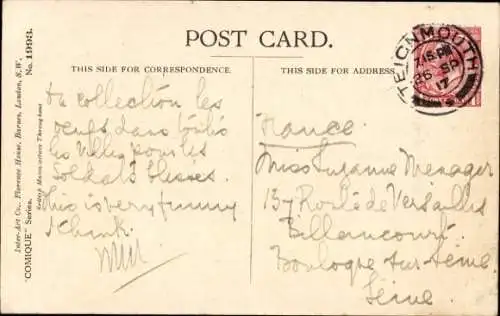 POST CARD.
THIS SIDE FOR CORRESPONDENCE.
THIS SIDE FOR ADDRESS.
Inter-Art Co., Florence House, Barnes, London, S.W.
"COMIQUE" Series. No. 1993.
British Manufacture Throughout
TEIGNMOUTH
7.15 PM
26 SP
17
collection les
oeufs dans toutes
les villes pour les
Soldats blesses.
This is very funny
I think.
France.
Miss Suzanne Menager
137 Route de Versailles
Billancourt.
Boulogne sur-Seine
Seine.